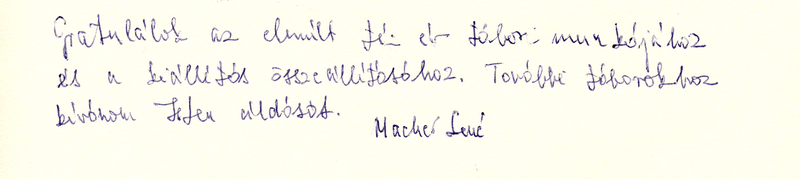 Gratulálok az elmúlt tíz év tábori munkájához
és a kiállítás összeállításához. További táborokhoz
kívánom Isten áldását.